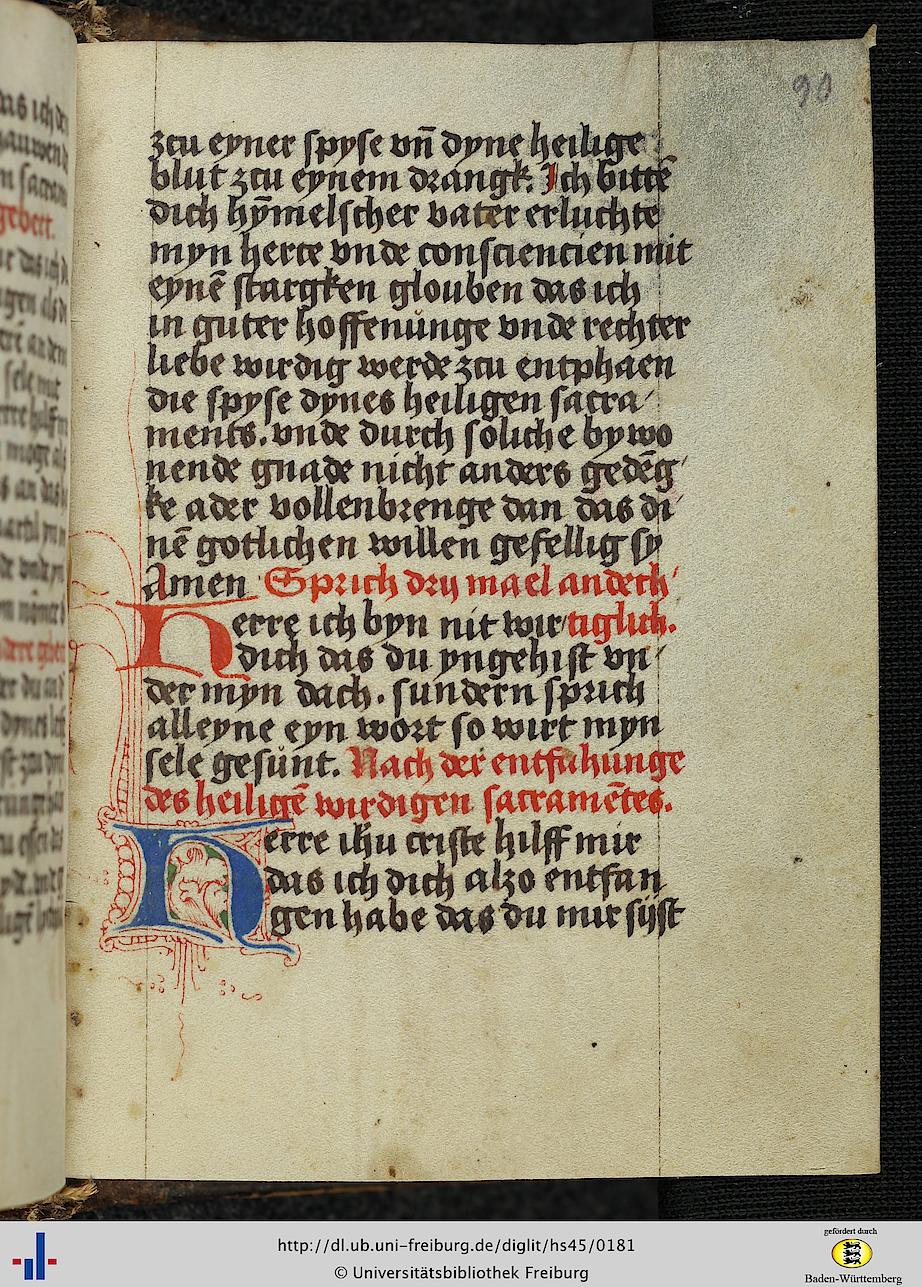 90
zcu eyner spyse vn̄ dyne heilige
blut zcu eynem drangk. Ich bittē
dich hȳmelscher vater erluchte
myn herte vnde consciencien mit
eynē stargken glouben das ich
in guter hoffenunge vnde rechter
liebe wirdig werde zcu entphaen
die spyse dynes heiligen sacra/
ments. vnde durch soliche bywo
nende gnade nicht anders gedēg/
ke ader vollenbrenge dan das di
nē gotlichen willen gefellig sy
Amen Sprich dry mael andech/
Herre ich byn nit wir/tiglich.
dich das du yngehist vn/
der myn dach. sundern sprich
alleyne eyn wort so wirt myn
sele gesunt. Nach der entfahunge
des heiligē wirdigen sacramētes.
Herre ihu criste hilff mir
das ich dich alzo entfan
gen habe das du mir sijst
http://dl.ub.uni-freiburg.de/diglit/hs45/0181
© Universitätsbibliothek Freiburg
gefördert durch
Baden-Württemberg